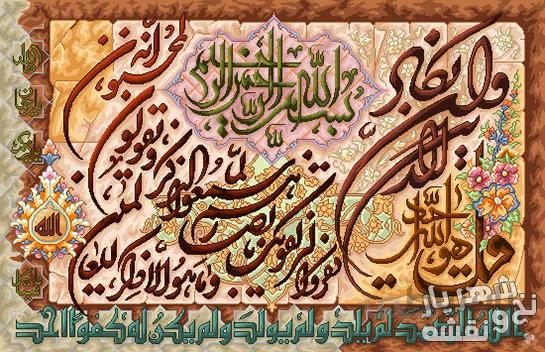 بسم الله الرحمن الرحيم
وان يكاد الذين كفروا ليزلقونك بابصارهم لما سمعوا الذكر ويقولون انه لمجنون
وما هو الا ذكر للعالمين
قل هو الله احد
الله الصمد لم يلد ولم يولد ولم يكن له كفوا احد
الله
نخ و نقشه
شهریار